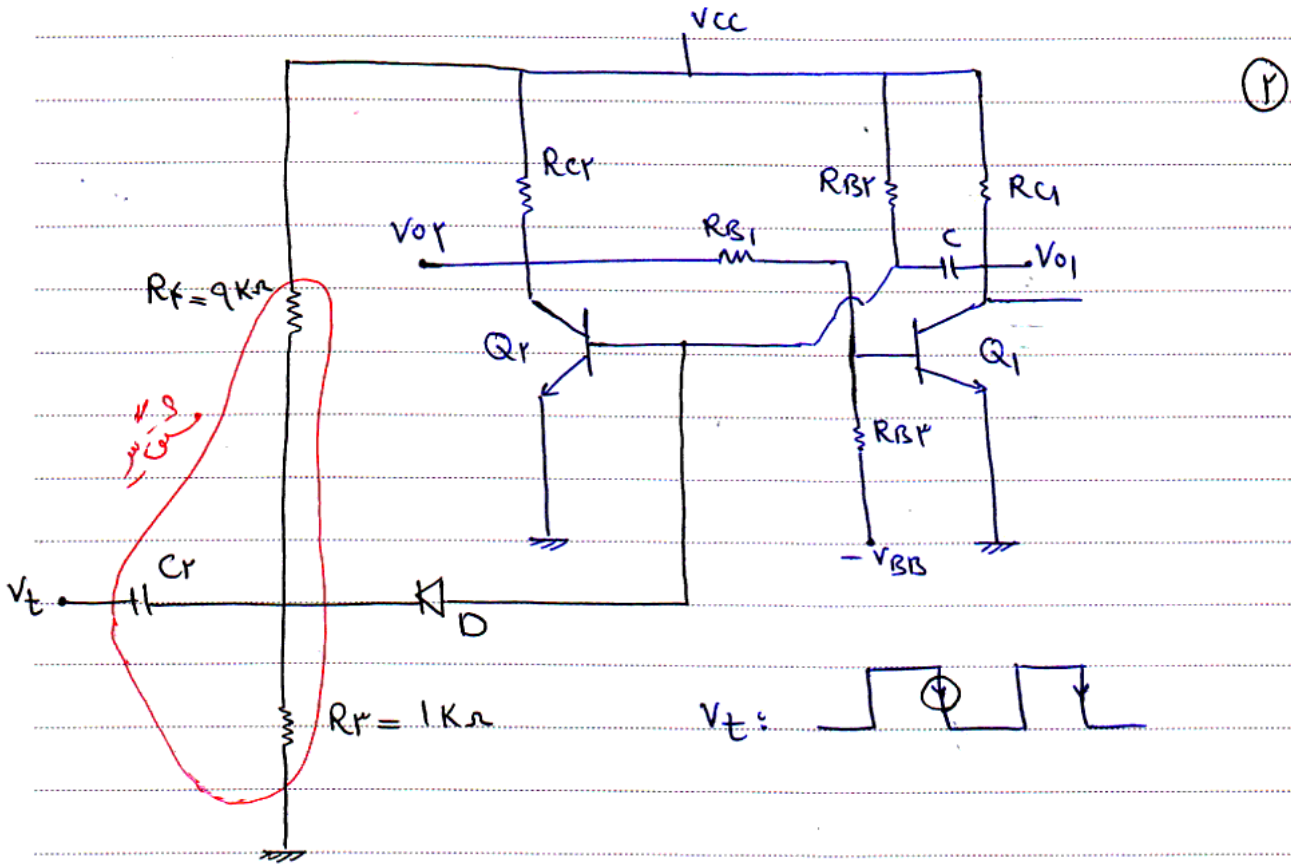 VCC
۲
RC۲
RB۲
RC۱
Vo۲
RB۱
C
Vo۱
R۴ = ۹KΩ
Q۲
Q۱
مشتق گیر
RB۳
-VBB
C۲
Vt
D
R۳ = ۱KΩ
Vt :